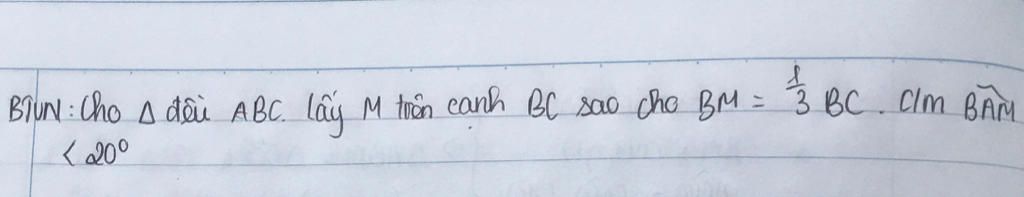 BTVN: Cho Δ đều ABC. lấy M trên cạnh BC sao cho BM = 1/3 BC. C/m BÂM
< 20°